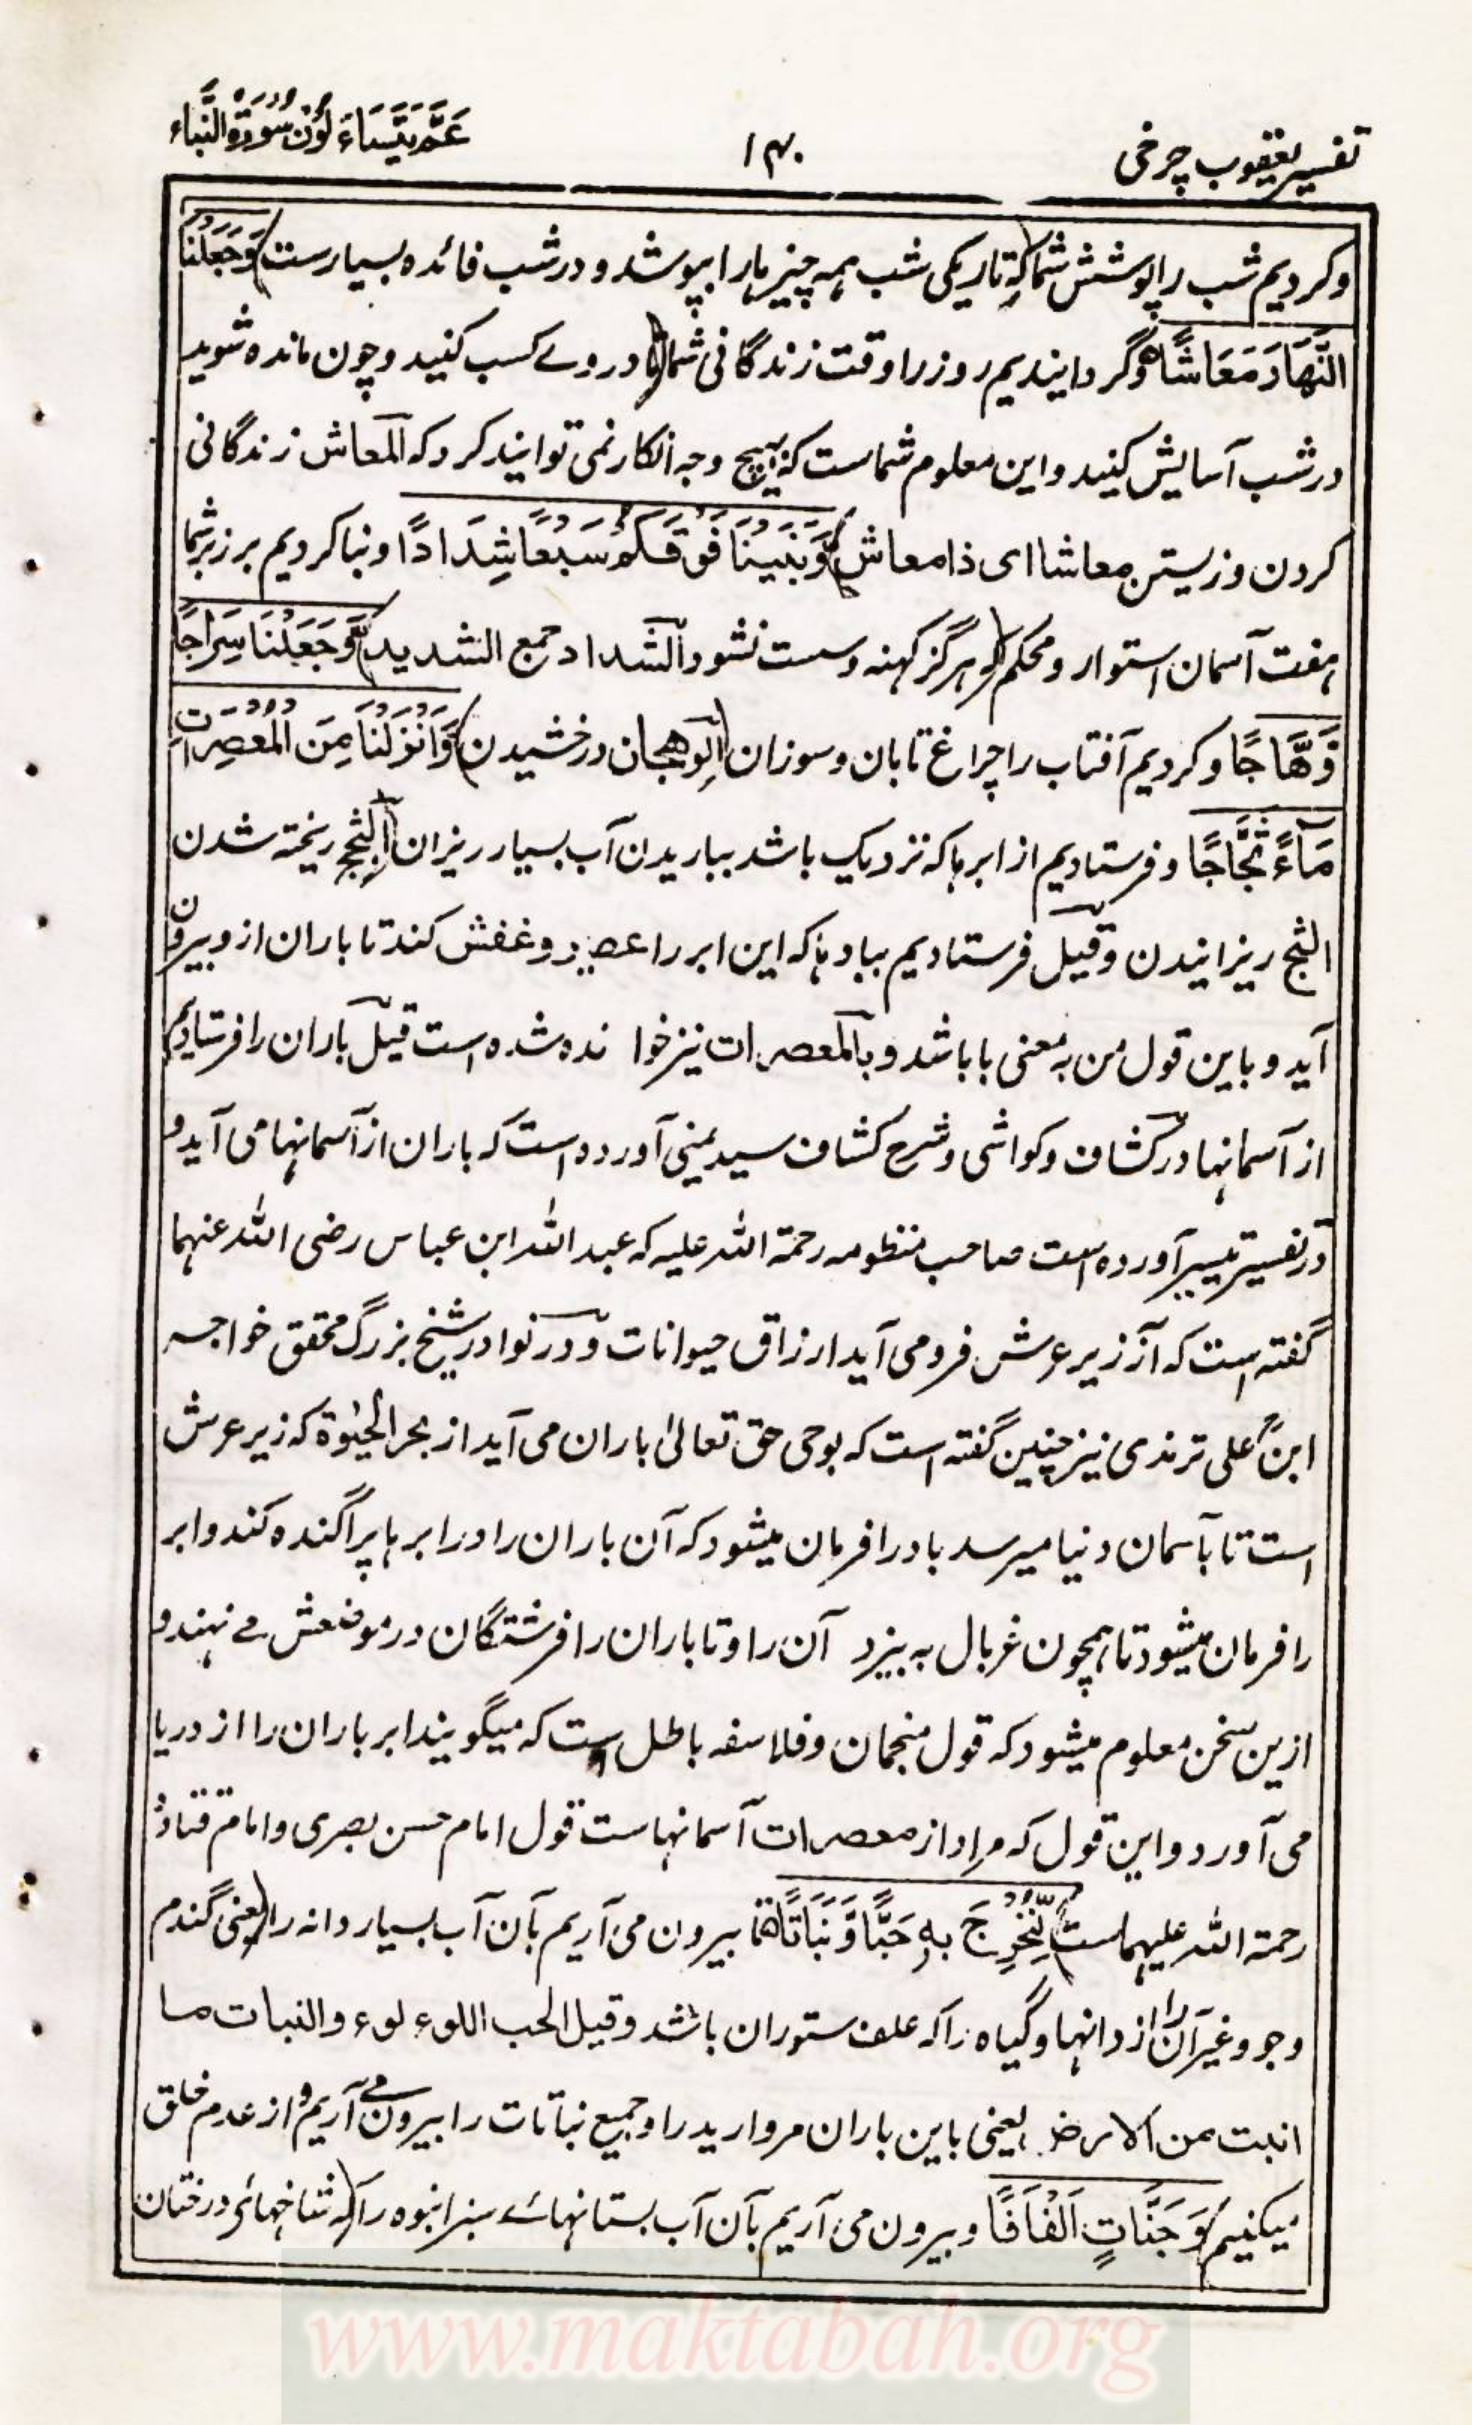 تفسیر یعقوب چرخی
۱۴۰
عَمَّ یَتَسَاءَلُوْنَ سُوْرَۃُ النَّبَاء
وکردیم شب را پوشش شما (که تاریکی شب همه چیزها را بپوشد و در شب فائده بسیارست) وَجَعَلْنَا
النَّهَارَ مَعَاشًا وگردانیدیم روز را وقت زندگانی شما (تا در وے کسب کنید و چون مانده شوید
در شب آسایش کنید و این معلوم شماست که هیچ وجه انکار نمی توانید کرد که المعاش زندگانی
کردن و زیستن معاشا ای ذا معاش) وَّبَنَيْنَا فَوْقَكُمْ سَبْعًا شِدَادًا و بنا کردیم بر زبر شما
هفت آسمان استوار و محکم (که هرگز کهنه و سست نشود الشداد جمع الشدید) وَّجَعَلْنَا سِرَاجًا
وَّهَّاجًا و کردیم آفتاب را چراغ تابان و سوزان (الوهجان درخشیدن) وَّاَنْزَلْنَا مِنَ الْمُعْصِرَاتِ
مَآءً ثَجَّاجًا و فرستادیم از ابرها که نزدیک باشد بباریدن آب بسیار ریزان (الثج ریخته شدن
الثج ریزانیدن و قیل فرستادیم ببادها که این ابر را عصیر و غفش کند تا باران از و بیرون
آید و باین قول من به معنی با باشد و بالمعصرات نیز خوا نده شده است قیل باران را فرستادیم
از آسمانها در کشاف و کواشی و شرح کشاف سید یمنی آورده است که باران از آسمانها می آید و
در تفسیر تیسیر آورده است صاحب منظومه رحمة الله علیه که عبدالله ابن عباس رضی الله عنهما
گفته است که آن زیر عرش فرو می آید ارزاق حیوانات و در نوادر شیخ بزرگ محقق خواجه
ابن علی ترندی نیز چنین گفته است که بوحی حق تعالیٰ باران می آید از بحر الحیٰوة که زیر عرش
است تا بآسمان دنیا میرسد باد را فرمان میشود که آن باران را در ابرها پراگنده کند و ابر
را فرمان میشود تا همچون غربال به بیزد آن را و تا باران را فرشتگان در موضعش مے نهند و
ازین سخن معلوم میشود که قول منجمان و فلاسفه باطل است که میگویند ابر باران را از دریا
می آورد و این قول که مراد از معصرات آسمانهاست قول امام حسن بصری و امام قتاده
رحمة الله علیهماست) لِّنُخْرِجَ بِهٖ حَبًّا وَّنَبَاتًا تا بیرون می آریم بآن آب بسیار دانه را (یعنی گندم
و جو و غیر آن را از دانها و گیاه را که علف ستوران باشد و قیل الحب اللوء لوء والنبات ما
انبت من الارض یعنی باین باران مروارید را و جمیع نباتات را بیرون می آریم و از عدم خلق
میکنیم) وَجَنَّاتٍ اَلْفَافًا و بیرون می آریم بآن آب بستانهائے سبز انبوه را (که شاخهائے درختان
www.maktabah.org